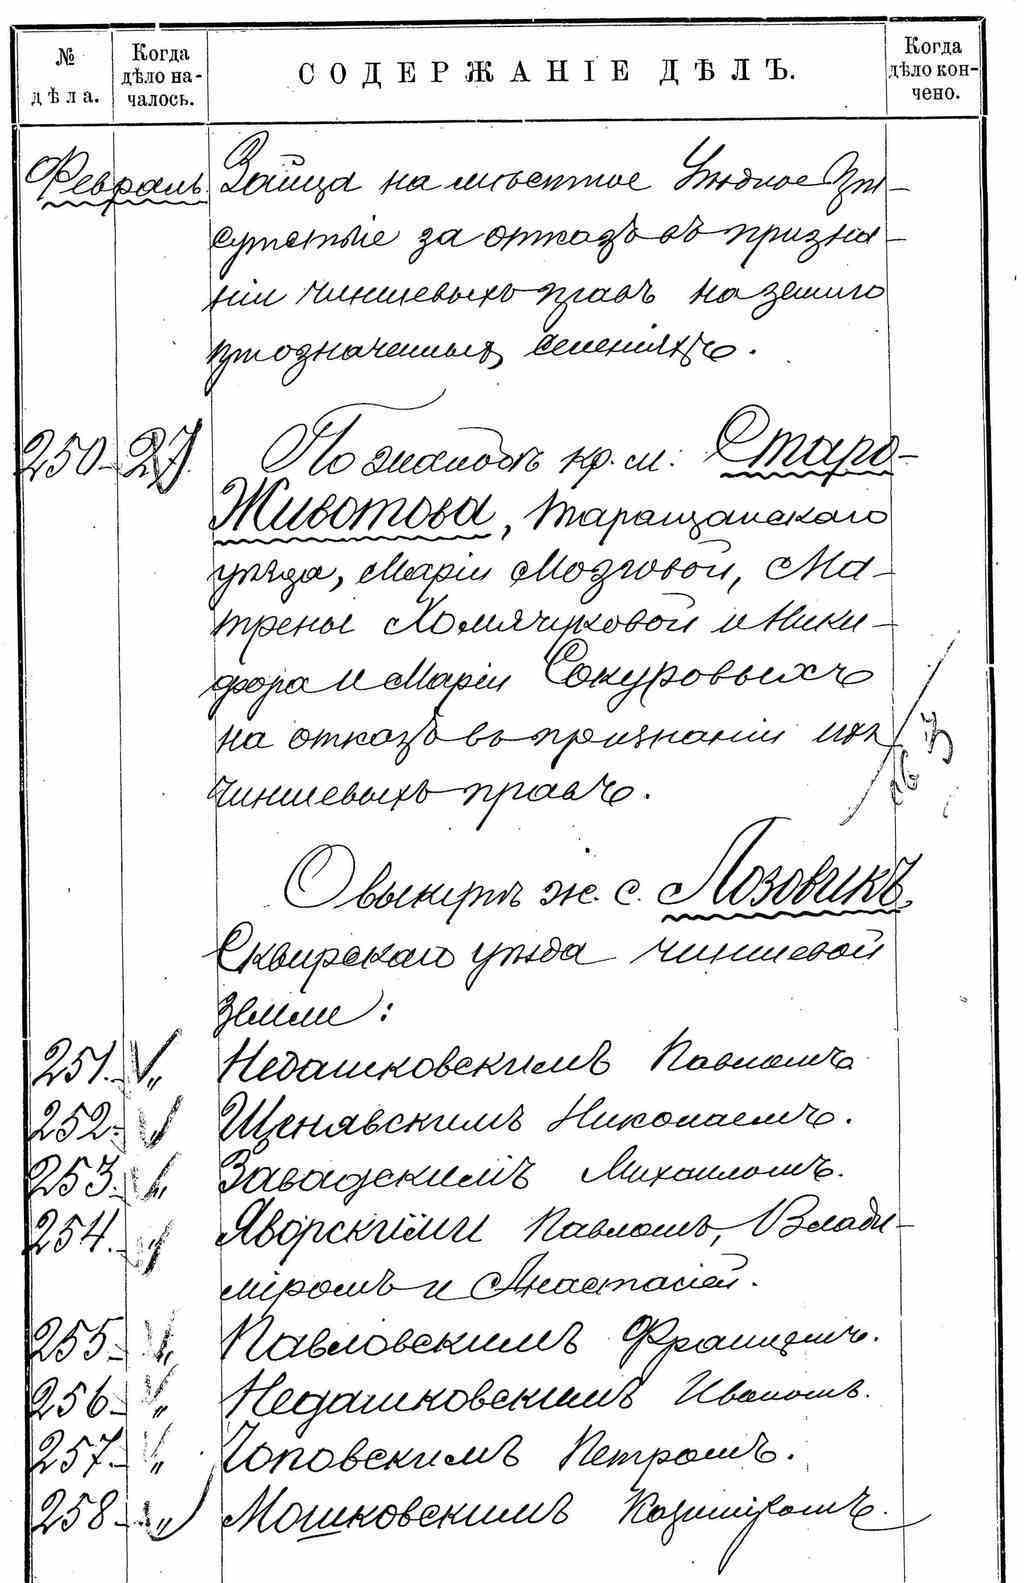 № дѣла.
Когда дѣло на-
чалось.
СОДЕРЖАНІЕ ДѢЛЪ.
Когда
дѣло кон-
чено.
Февраль.
Зайца на мѣстное Уѣздное При-
сутствіе за отказъ въ призна-
ніи чиншевыхъ правъ на землю
при означенныхъ селеніяхъ.
250 27 По жалобѣ кр. м. Старо-
Животова, Таращанскаго
уѣзда, Маріи Мозговой, Ма-
трены Хомячуковой и Ники-
фора и Маріи Сокуровыхъ
на отказъ въ признаніи ихъ
чиншевыхъ правъ.
О выкупѣ ж. с. Лозовикъ,
Сквирскаго уѣзда чиншевой
земли:
251. „ Недашковскимъ Павломъ
252. „ Щенявскимъ Николаемъ.
253. „ Завадскимъ Михаиломъ.
254. „ Яворскими Павломъ, Влади-
міромъ и Анастасіей.
255 „ Павловскимъ Францемъ.
256 „ Недашковскимъ Иваномъ.
257 „ Чоповскимъ Петромъ.
258 „ Мошковскимъ Казиміромъ.